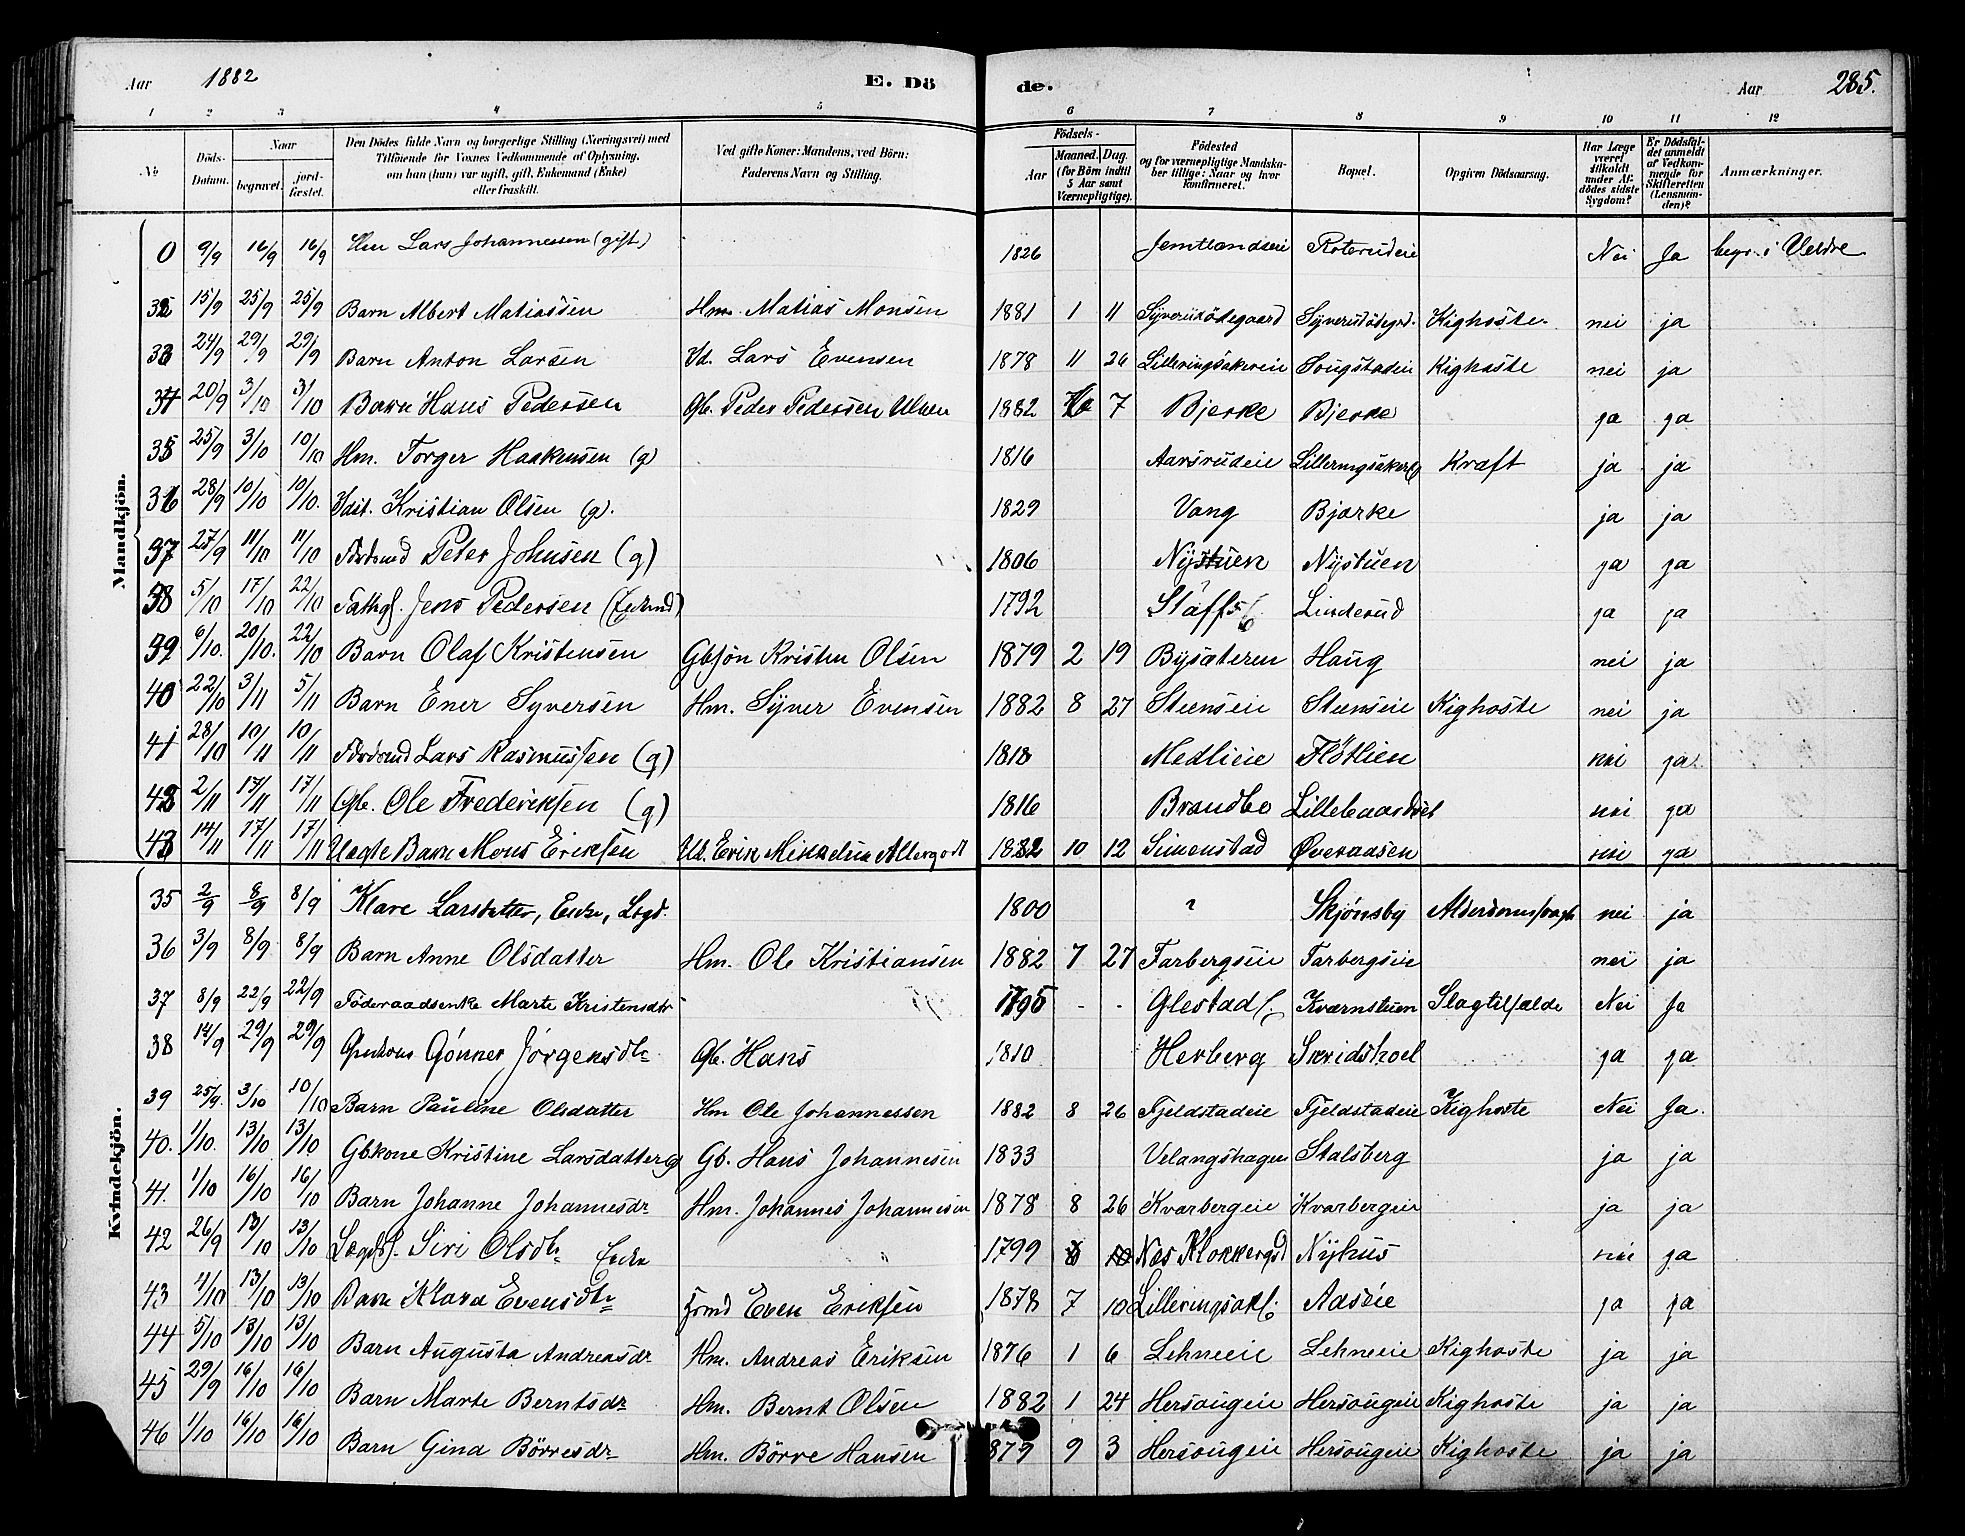 Aar 1882 E. Dö de. Aar 285.
1 2 3 4 5 6 7 8 9 10 11 12
No
Döds-Datum.
Naar
begravet.
jord-fæstet.
Den Dödes fulde Navn og borgerlige Stilling (Næringsvei) med
Tilföiende for Voxnes Vedkommende af Oplysning,
om han (hun) var ugift, gift, Enkemand (Enke)
eller fraskilt.
Ved gifte Koner: Mandens, ved Börn:
Faderens Navn og Stilling.
Födsels-
Aar
Maaned. Dag.
(for Börn indtil
5 Aar samt
Værnepligtige).
Födested
og for værnepligtige Mandska-
ber tillige: Naar og hvor
konfirmeret.
Bopæl.
Opgiven Dödsaarsag.
Har Læge
været
tilkaldt
under Af-
dödes sidste
Sygdom?
Er Dödsfal-
det anmeldt
af Vedkom-
mende for
Skifteretten
(Lensman-
den)?
Anmærkninger.
Mandkjön.
0 9/9 16/9 16/9 Hm Lars Johannessen (gift) 1826 Jemtlandseie Roterudeie Nei Ja begr. i Veldre
32 15/9 25/9 25/9 Barn Albert Matiassen Hm. Matias Monsen 1881 1 11 Syverudödegaard Syverudödegrd. Kighoste. nei ja
33 24/9 29/9 29/9 Barn Anton Larsen Id. Lars Evensen 1878 11 26 Lilleringsakereie Sougstadeie Kighoste nei ja
34 20/9 3/10 3/10 Barn Hans Pedersen Gb. Peder Pedersen 1882 7 Bjerke Bjerke ja ja
35 25/9 3/10 10/10 Hm. Torger Haakensen (g) 1816 Aarsrudeie Kræft ja ja
36 28/9 10/10 10/10. Kristian Olsen (g). 1829 Vang Bjørke ja ja
37 27/9 11/10 11/10 Peter Johnsen (g) 1806 Nystuen Nystuen ja ja
38 5/10 17/10 22/10 Fattigl. Jens Pedersen 1792 Linderud ja ja
39 6/10. 20/10. 22/10 Barn Olaf Kristensen Gbsön Kristen Olsen 1879 2 19 Bysæteren Haug nei ja
40 22/10 3/11 5/11 Barn Ener Syversen Hm. Syver Evensen 1882 8 27 Steenseie Steenseie Kighoste nei ja
41 28/10 10/11 10/11 Lars Rasmussen (g) 1818 Medlieie Flötlien nei ja
42 2/11 17/11 17/11 Gb. Ole Frederiksen (g) 1816 Brandbo nei ja
43 14/11 17/11 17/11 Uægte Barn Mons Eriksen Erik Mikkelsen 1882 10 12 Simenstad Øveraasen nei ja
Kvindekjön.
35 2/9 8/9 8/9 Klare Larsdatter, Enke, Lægd. 1800 ? Skjønsby nei ja
36 3/9 8/9 8/9 Barn Anne Olsdatter Hm. Ole Kristiansen 1882 7 27 Farbergseie Farbergseie nei ja
37 8/9 22/9 22/9 Föderaadsenke Marte Kristensdtr 1795 - - Glestad Kværnstuen Slagtilfælde Nei Ja
38 14/9 29/9 29/9 Gönner Jörgensdtr Gb. Hans 1810 Herberg Skridshoel ja ja
39 25/9. 3/10 10/10 Barn Pauline Olsdatter Hm Ole Johannessen 1882 8 26 Fjeldstadeie Fjeldstadeie Kighoste Nei Ja.
40. 1/10. 13/10 13/10 Gbkone Kristine Larsdatter Gb. Hans Johannesen 1833 Velangshagen Stalsberg ja ja
41. 1/10 16/10 16/10 Barn Johanne Johannesdr Hm. Johannes Johannesen 1878 8 26 Kvarbergeie Kvarbergeie ja ja
42 26/9 13/10 13/10 Lægdsl. Siri Olsdtr Enke 1799 Næs Klokkergrd Nyhus nei ja
43 4/10 13/10 13/10 Barn Klara Evensdtr Even Eriksen 1878 7 10 Aaseie ja ja
44 5/10 13/10 13/10 Barn Augusta Andreasdr Hm. Andreas Eriksen 1876 1 6 Lehneeie Lehneeie Kighoste ja ja
45 29/9 16/10 16/10 Barn Marte Berntsdr Hm. Bernt Olsen 1882 1 24 Hersougeie Hersougeie Kighoste ja ja
46 1/10 16/10 16/10 Barn Gina Börresdr Hm. Börre Hansen 1879 9 3 Hersougeie Hersougeie Kighoste ja ja